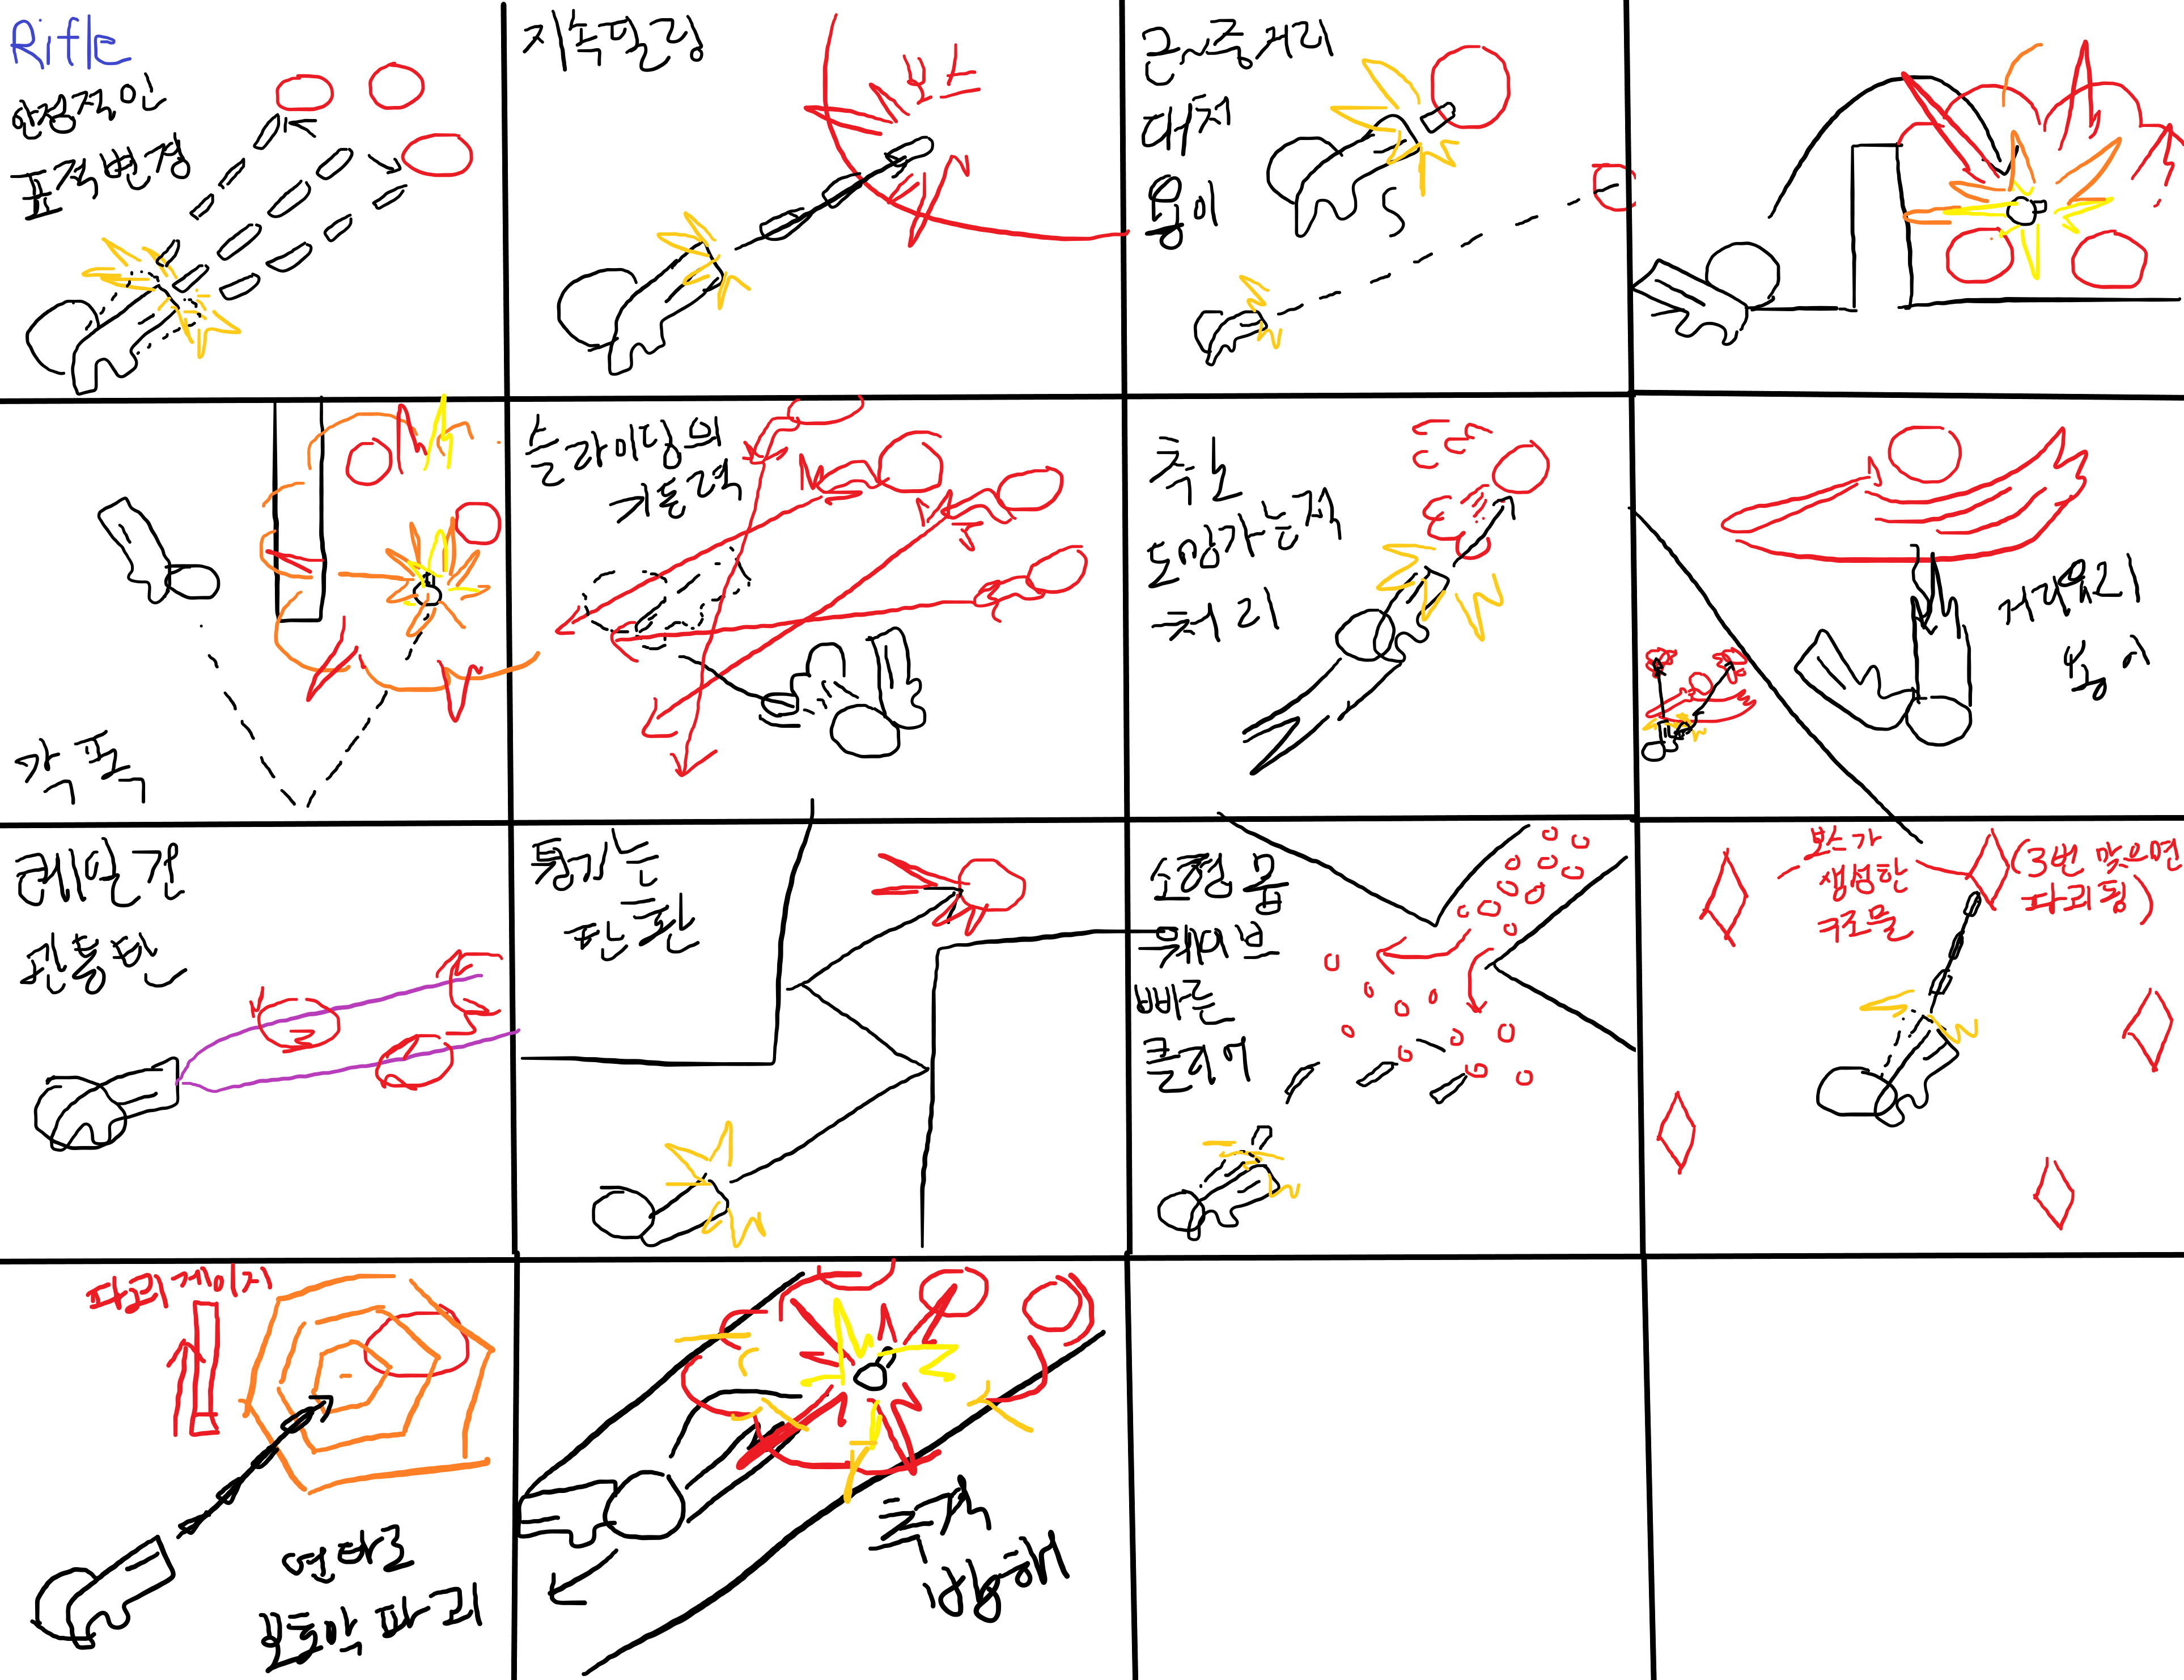 Rifle
안정적인
표적변경
지속딜링
보스
근~중거리
대처
용이
슬라이딩의
기동력
흑노
도망가는적
처리
각폭
거리벌리
용이
레일건
관통탄
튕기는
탄환
소형몹
웨이브
빠른
클리어
보스가
생성한
구조물
(3번 맞으면
파괴됨)
파괴게이지
연타로
보호막 파괴
추적
방해